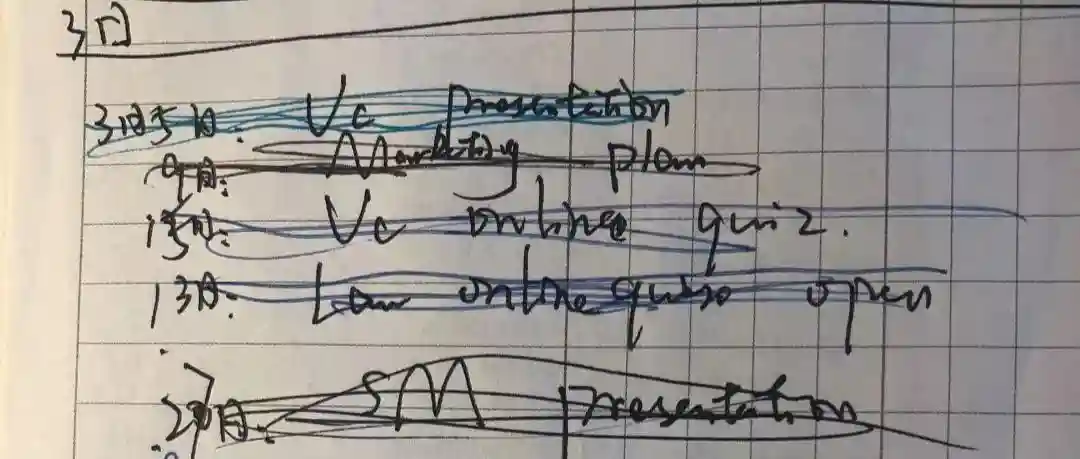 3月
3月5日: Vc presentation
9日: Marketing plan
日: Vc online quiz.
13日: Law online quiz open
日: SM Presentation